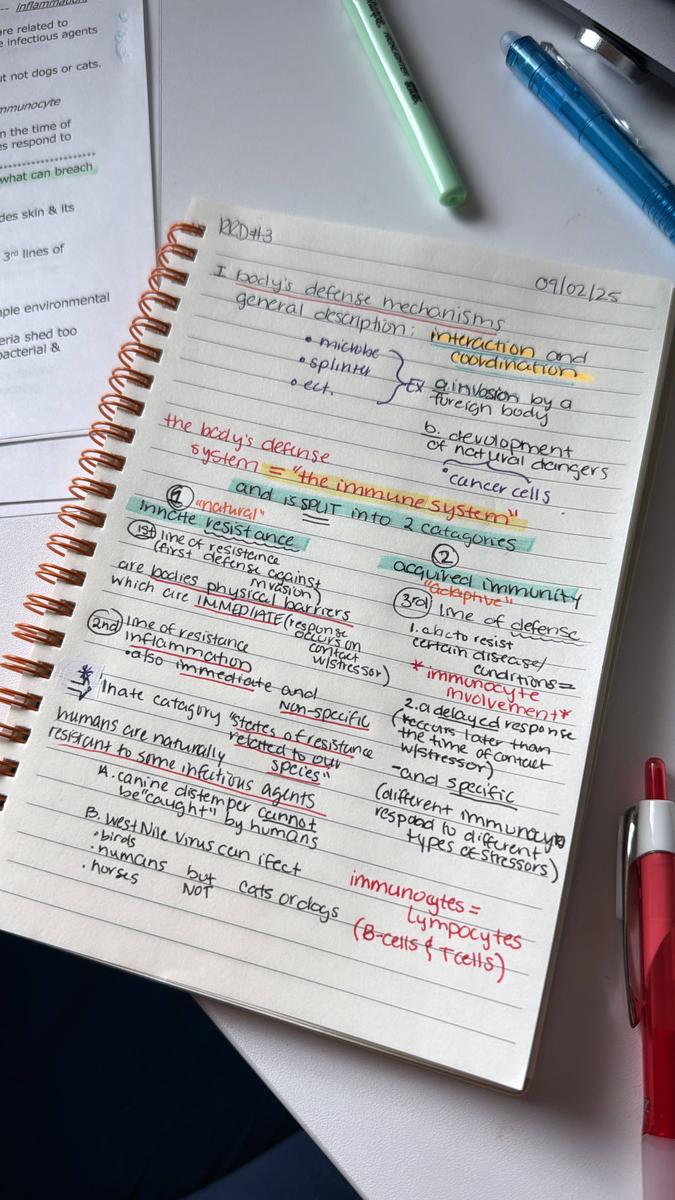 inflammation
are related to
e infectious agents
ut not dogs or cats.
mmunocyte
n the time of
es respond to
what can breach
des skin & its
3rd lines of
ple environmental
eria shed too
bacterial &
09/02/25
I body's defense mechanisms
general description: interaction and
coordination
• microbe
• splinter
• ect.
Ex
a. invasion by a
foreign body
b. devolopment
of natural dangers
• cancer cells
the body's defense
system = "the immune system"
and is SPLIT into 2 catagories
① "natural"
innate resistance
1st line of resistance
(first defense against
invasion)
are bodies physical barriers
which are IMMEDIATE (response
occurs on
contact
w/stressor)
2nd line of resistance
inflammation
• also immediate and
non-specific
* ⇒ Inate catagory "states of resistance
related to our
species"
humans are naturally
resistant to some infectious agents
A. canine distemper cannot
be "caught" by humans
B. West Nile Virus can ifect
• birds
• humans but cats or dogs
• horses NOT
②
acquired immunity
"adaptive"
3rd line of defense
1. to resist
certain disease/
conditions=
* immunocyte
involvement *
2. a delayed response
(reccurs later than
the time of contact
w/stressor)
- and specific
(different immunocyte
respond to different
types of stressors)
immunocytes =
lympocytes
(B-cells & T cells)